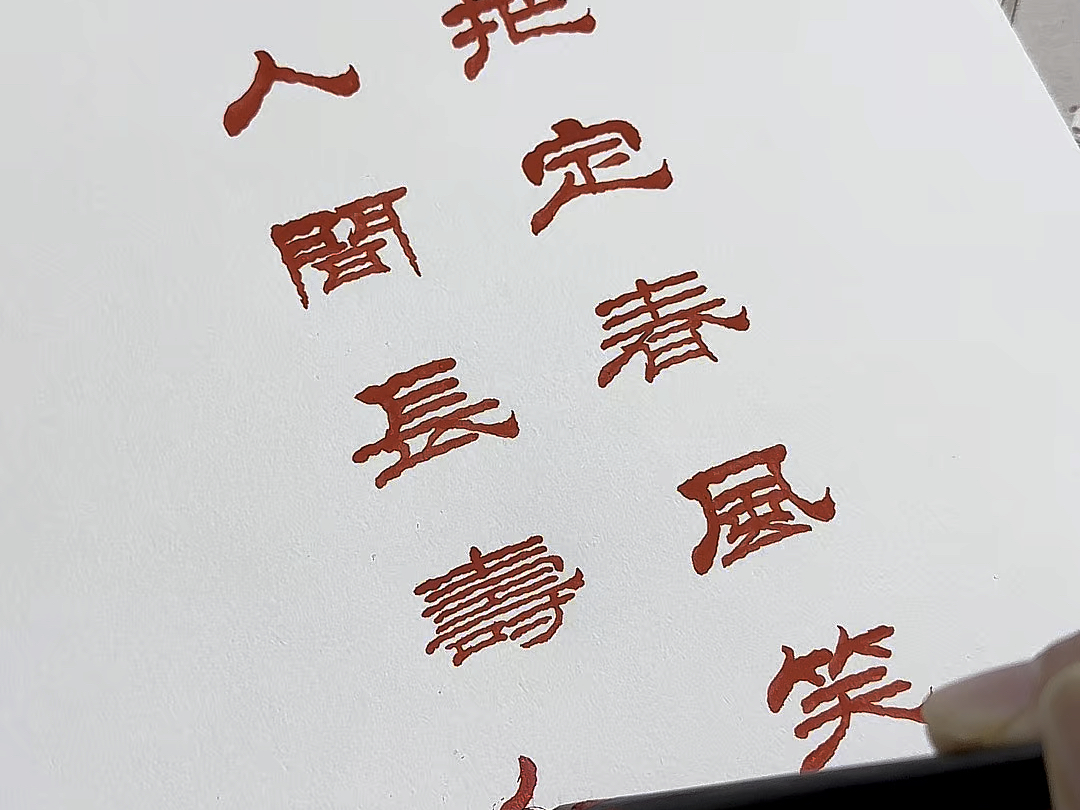 把定春風笑
人間長壽